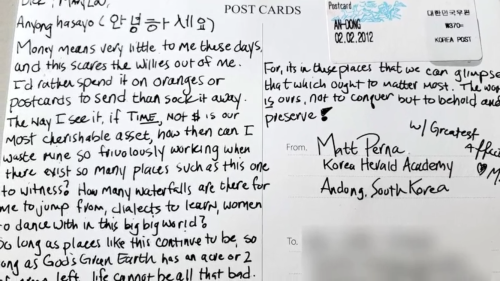 Anyong hasayo (안녕하세요)
Money means very little to me these days,
and this scares the willies out of me.
I'd rather spend it on oranges or
postcards to send than sock it away.
The way I see it, if TIME, not $ is our
most cherishable asset, how then can I
waste mine so frivolously working when
there exist so many places such as this one
to witness? How many waterfalls are there for
me to jump from, dialects to learn, women
to dance with in this big big world?
So long as places like this continue to be, so
long as God's Green Earth has an acre or 2
left, life cannot be all that bad.
POST CARDS
Postcard
AN-DONG
02.02.2012
대한민국우편
₩370
KOREA POST
For, its in these places that we can glimpse
that which ought to matter most. The
is ours, not to conquer but to behold and
preserve!
w/ Greatest
From.
Matt Perna
Korea Herald Academy
Andong, South Korea
To.